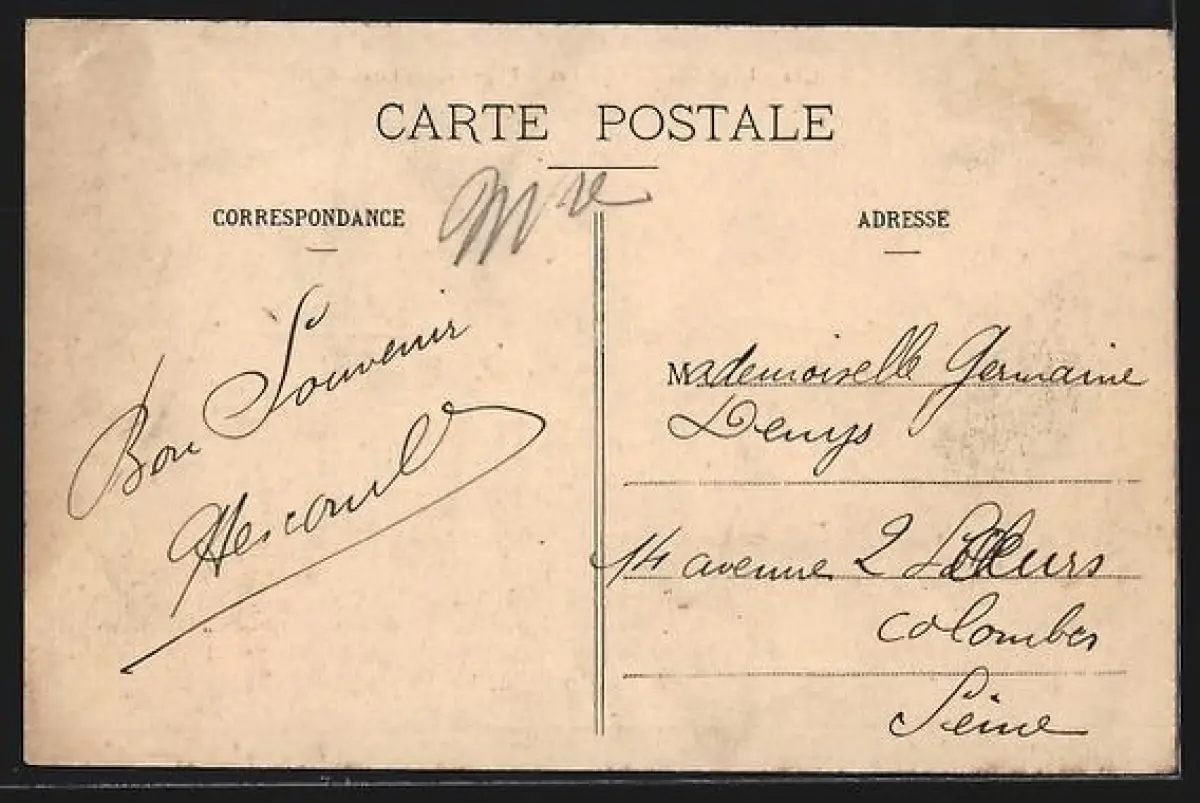 CARTE POSTALE
CORRESPONDANCE
ADRESSE
Bon Souvenir
Mademoiselle Germaine
Denys
14 avenue 2
Colombes
Seine